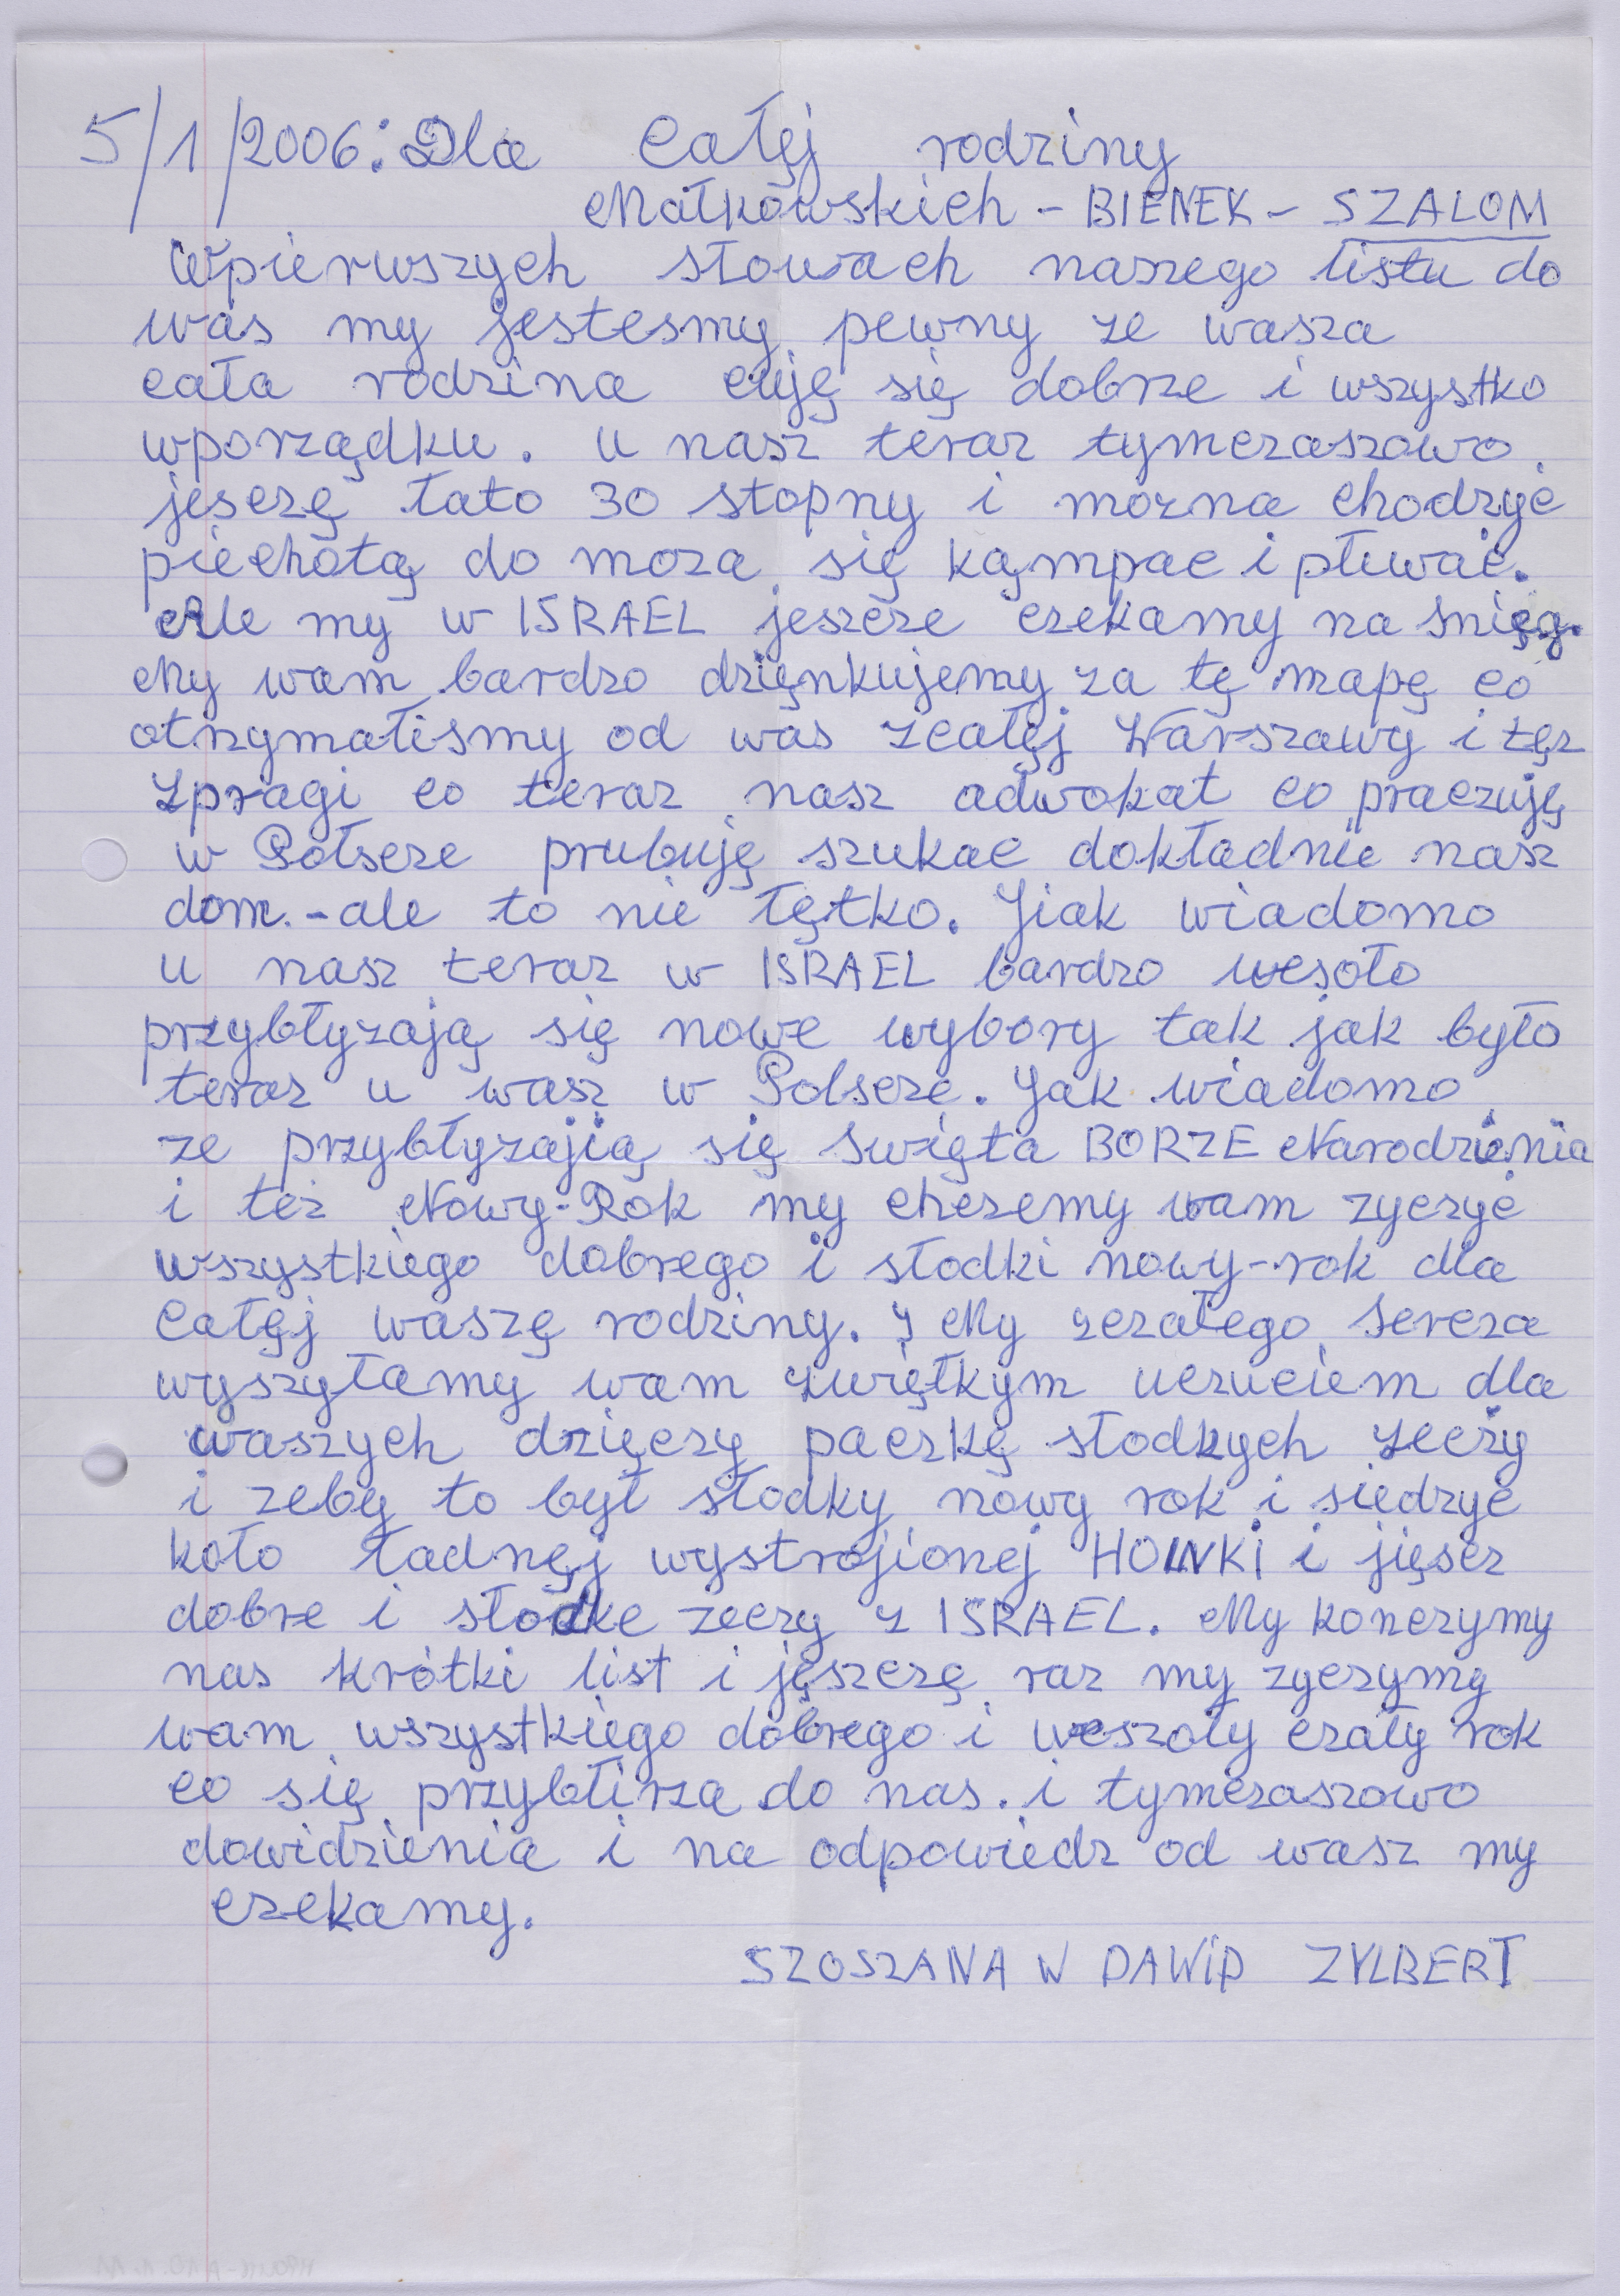 5/1/2006: Dla całęj rodziny
Małkowskich - BIENEK - SZALOM
Wpierwszych słowach naszego listu do
was my jestesmy pewny ze wasza
cała rodzina cuję się dobrze i wszystko
wporządku. u nasz teraz tymczaszowo
jesczę łato 30 stopny i mozna chodzyc
piechotą do moza się kąmpac i pływać.
Ale my w ISRAEL jescze czekamy na śnięg.
My wam bardzo dzięnkujemy za tę mapę co
otrzymaliśmy od was zcałęj Warszawy i tęz
zpragi co teraz nasz adwokat co praczuję
w Połscze prubuję szukac dokładnie nasz
dom. - ale to nie łętko. Jiak wiadomo
u nasz teraz w ISRAEL bardzo wesoło
przybłyzają się nowe wybory tak jak było
teraz u wasz w Polsczę. Jak wiadomo
ze przybłyzajią się święta BORZE Narodzienia
i też Nowy-Rok my chczemy wam zyczyć
wszystkiego dobrego i słodki nowy-rok dla
całęj waszę rodziny. I My zczałego sercza
wyszyłamy wam zwięłkym uczuciem dla
waszych dzięczy paczkę słodkych zeczy
i zeby to był słodky nowy rok i siedzyć
koło ładnęj wystrojionej HOINKI i jięscz
dobre i słodke zeczy z ISRAEL. My konczymy
nas krótki list i jęszczę raz my zyczymy
wam wszystkiego dobrego i weszoły czały rok
co się przybłirza do nas. i tymczaszowo
dowidzienia i na odpowiedz od wasz my
czekamy.
SZOSZANA W DAWiD ZYLBERT